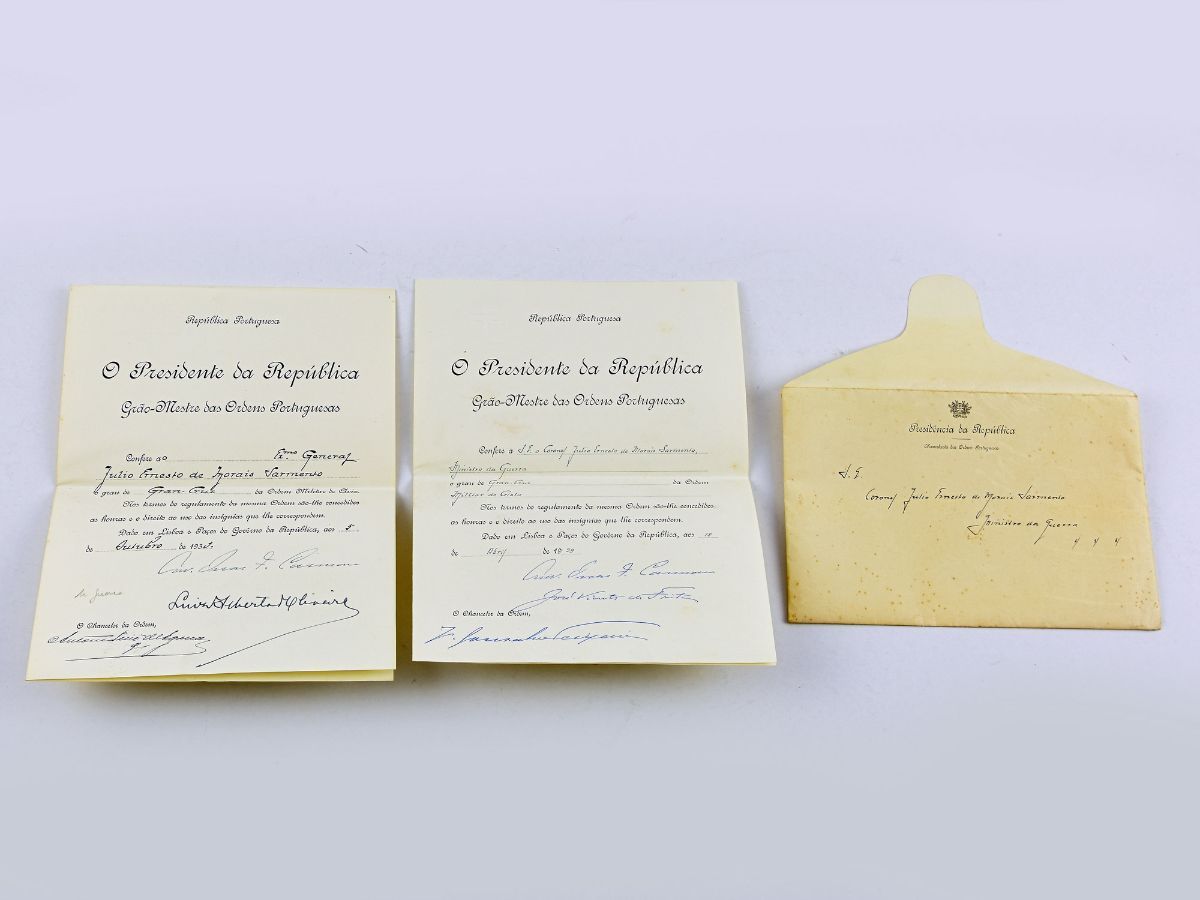 República Portuguesa
O Presidente da República
Grão-Mestre das Ordens Portuguesas
Confere ao Exmo General
Julio Ernesto de Morais Sarmento
o grau de Gran-Cruz da Ordem Militar de Christo
Nos termos do regulamento da mesma Ordem são-lhe concedidos
as honras e o direito ao uso das insígnias que lhe correspondem.
Dado em Lisboa e Paços do Govêrno da República, aos 5
de Outubro de 193
Luis Alberto d'Oliveira
O Chanceler da Ordem,
República Portuguesa
O Presidente da República
Grão-Mestre das Ordens Portuguesas
Confere a S. E. o Coronel Julio Ernesto de Morais Sarmento,
Ministro da Guerra
o grau de Gran-Cruz da Ordem
Militar de Cristo
Nos termos do regulamento da mesma Ordem são-lhe concedidas
as honras e o direito ao uso das insígnias que lhe correspondem.
Dado em Lisboa e Paços do Govêrno da República, aos
de Abril de 1929
José Vicente de Freitas
O Chanceler da Ordem,
Presidência da República
Chancelaria das Ordens Portuguesas
S. E.
Coronel Julio Ernesto de Morais Sarmento
Ministro da Guerra